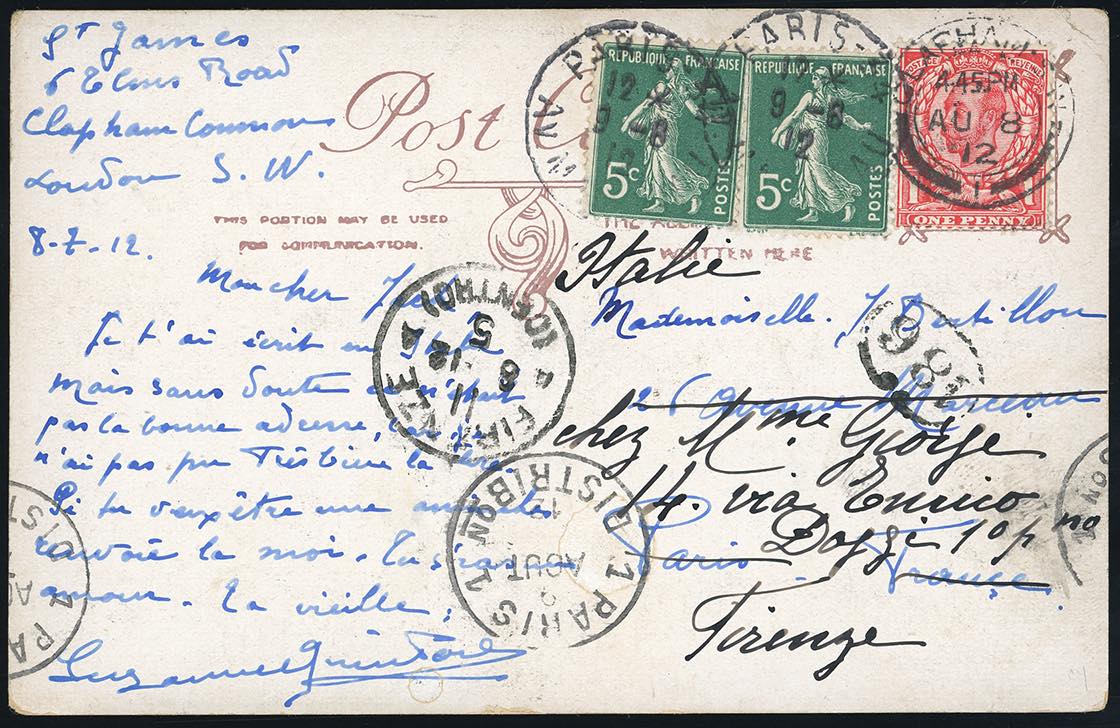 St James
6 Elms Road
Clapham Common
London S. W.
8-7-12.
Mon cher
Je t'ai écrit en
mais sans doute ce n'était
pas la bonne adresse, car je
n'ai pas pu très bien la lire.
Si tu veux être une
renvoie la moi.
amour. Ta vieille,
Suzanne
Post
THIS PORTION MAY BE USED
FOR COMMUNICATION.
THE
WRITTEN HERE
REPUBLIQUE FRANÇAISE
5c
POSTES
REPUBLIQUE FRANÇAISE
5c
POSTES
POSTAGE REVENUE
ONE PENNY
PARIS
12
9 -8
PARIS
9 -8
12
CLAPHAM
4.45PM
AU 8
12
1
Italie
Mademoiselle. J Bertillon
26 Avenue Marceau
Paris. France
chez M.me George
14. via Enrico
Poggi 1o p no
Firenze
FIRENZE
11
8 -12
5
PARIS 1 DISTRIBON
AOUT
12
PA
DIST
186